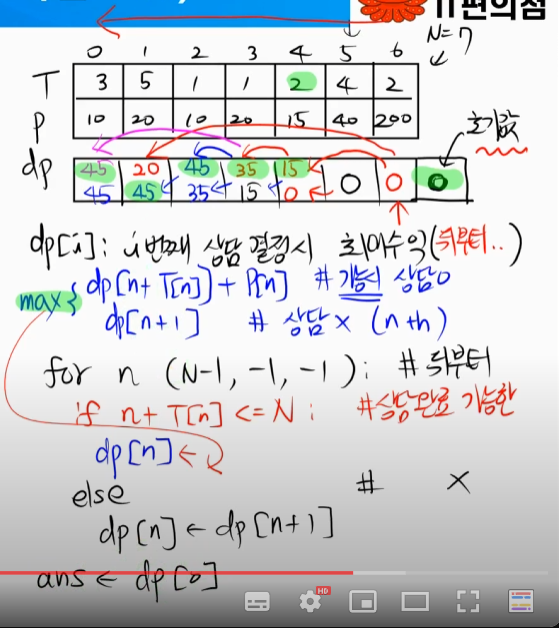 IT편의점
N=7
0 1 2 3 4 5 6
T 3 5 1 1 2 4 2
P 10 20 10 20 15 40 200
초기값
dp 45 20 45 35 15 0 0 0
45 45 35 15 0
dp[i] : i번째 상담 결정시 최대수익(뒤부터..)
max { dp[n+T[n]]+P[n] # 가능시 상담o
dp[n+1] # 상담x (n+h)
for n (N-1, -1, -1): # 뒤부터
if n+T[n] <= N : #상담완료 가능한
dp[n] ←
else # X
dp[n] ← dp[n+1]
ans ← dp[0]
HD